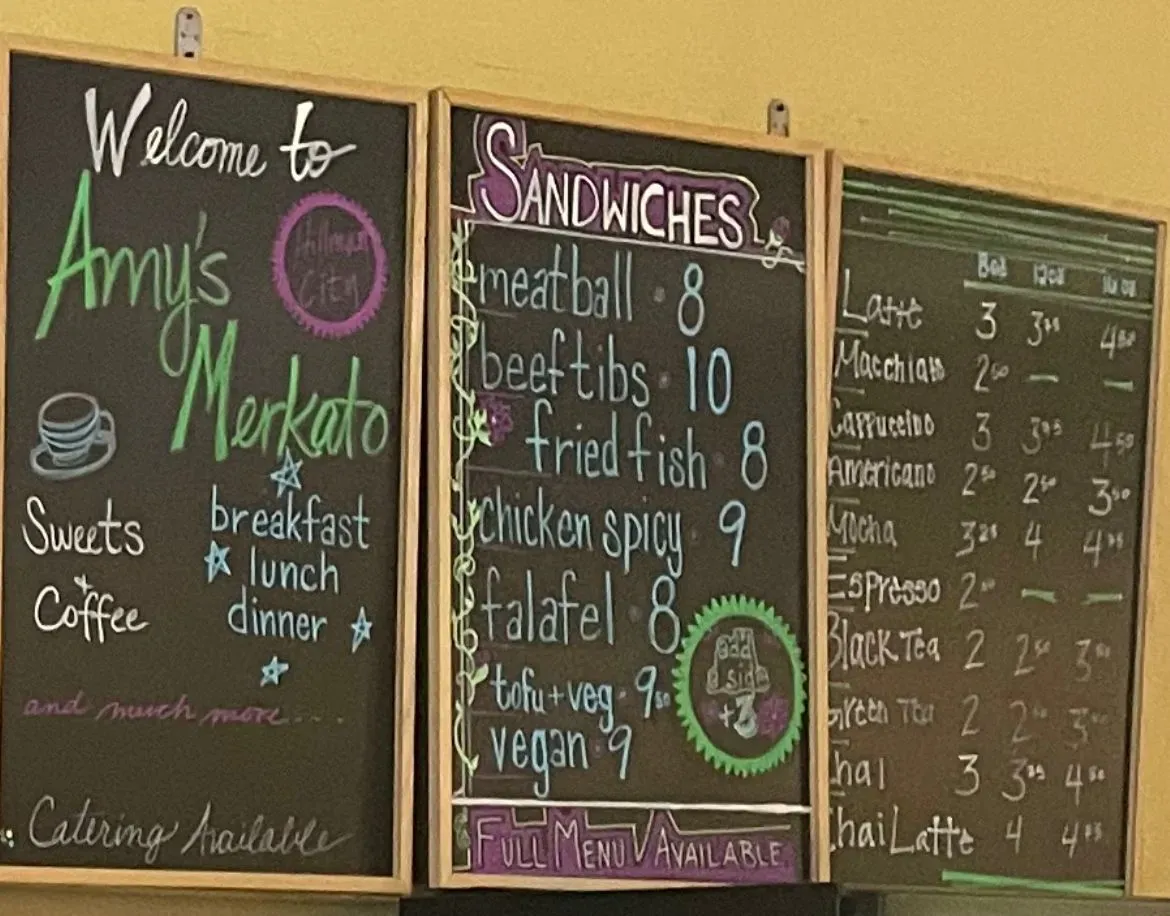 Welcome to
Amy's
Merkato
Hillman
City
Sweets
+
Coffee
breakfast
lunch
dinner
and much more....
Catering Available
SANDWICHES
meatball · 8
beef tibs · 10
fried fish · 8
chicken spicy · 9
falafel · 8
tofu + veg · 9.50
vegan · 9
add
side
+3
FULL MENU AVAILABLE
8oz 12oz 16oz
Latte 3
Macchiato 2 50 — —
Cappuccino 3 4 50
Americano 2 50 2 50 3 50
Mocha 4
Espresso — —
Black Tea 2 2 50 3
Green Tea 2
Chai 3 4 50
Chai Latte 4